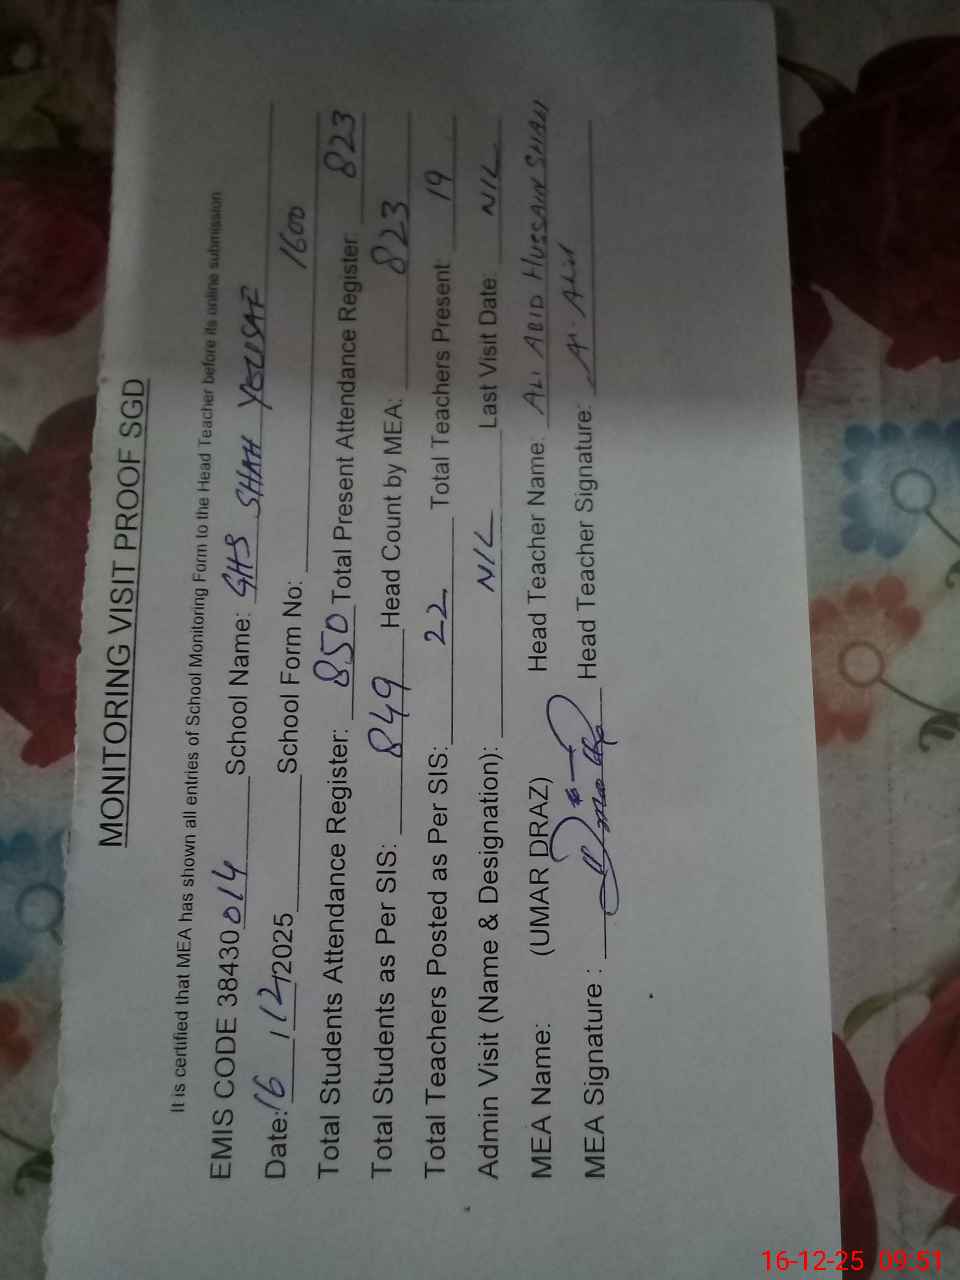 MONITORING VISIT PROOF SGD
It is certified that MEA has shown all entries of School Monitoring Form to the Head Teacher before its online submission
EMIS CODE 38430014 School Name: GHS SHAH YOUSAF
Date: 16/12/2025 School Form No: 1600
Total Students Attendance Register: 850 Total Present Attendance Register: 823
Total Students as Per SIS: 849 Head Count by MEA: 823
Total Teachers Posted as Per SIS: 22 Total Teachers Present: 19
Admin Visit (Name & Designation): NIL Last Visit Date: NIL
MEA Name: (UMAR DRAZ) Head Teacher Name: ALI ABID HUSSAIN SHAH
MEA Signature : Head Teacher Signature:
16-12-25 09:51